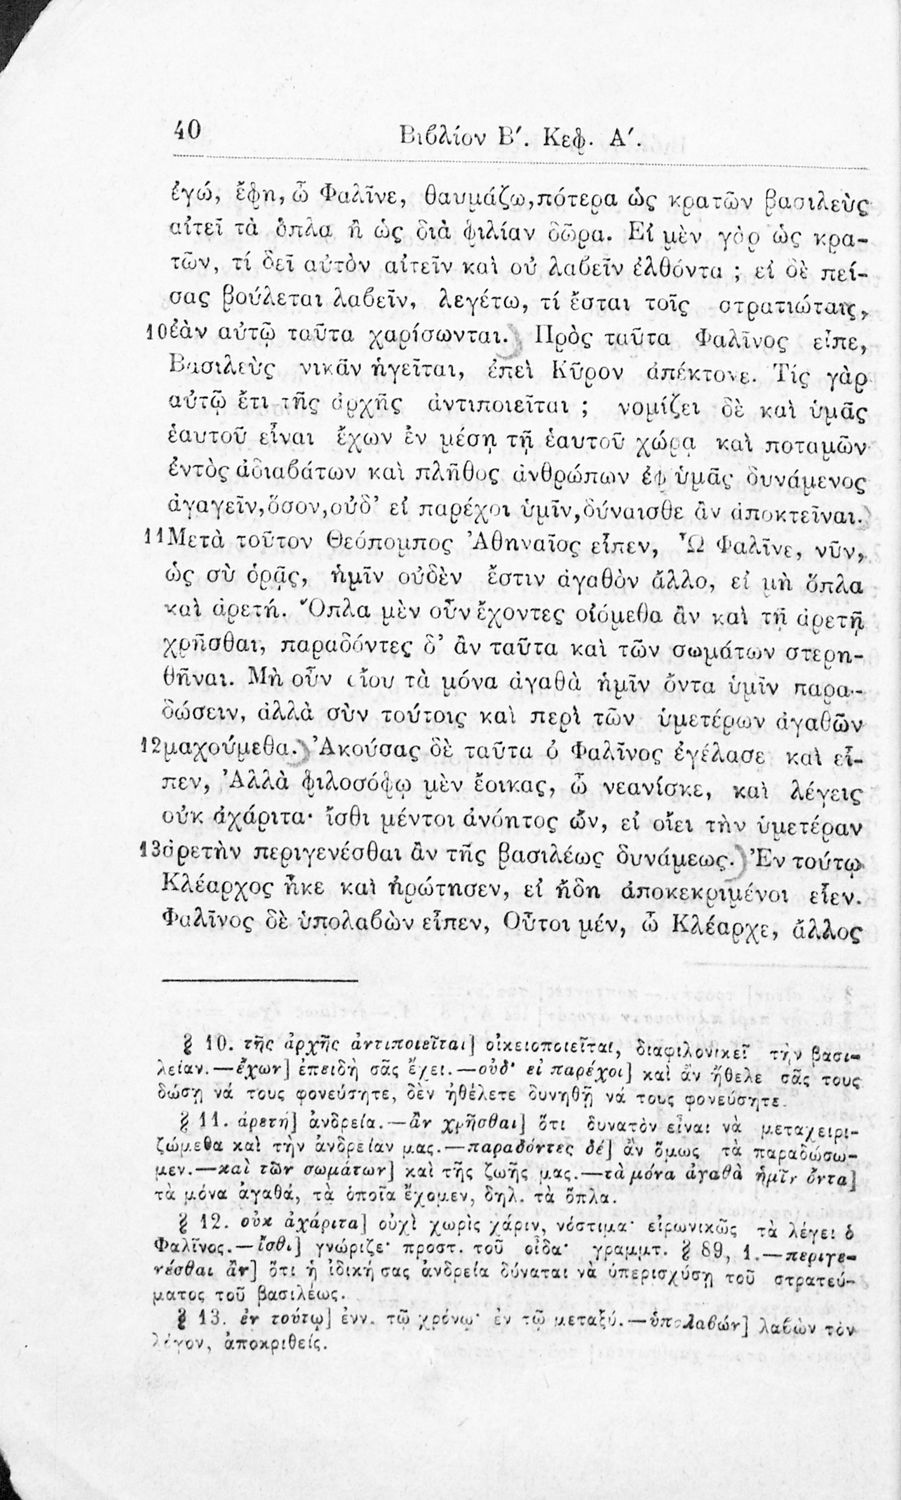 40 Βιβλίον Β΄. Κεφ. Α΄.
ἐγώ, ἔφη, ὦ Φαλῖνε, θαυμάζω, πότερα ὡς κρατῶν βασιλεὺς
αἰτεῖ τὰ ὅπλα ἢ ὡς διὰ φιλίαν δῶρα. Εἰ μὲν γὰρ ὡς κρα-
τῶν, τί δεῖ αὐτὸν αἰτεῖν καὶ οὐ λαβεῖν ἐλθόντα ; εἰ δὲ πεί-
σας βούλεται λαβεῖν, λεγέτω, τί ἔσται τοῖς στρατιώταις,
10 ἐὰν αὐτῷ ταῦτα χαρίσωνται. Πρὸς ταῦτα Φαλῖνος εἶπε,
Βασιλεὺς νικᾶν ἡγεῖται, ἐπεὶ Κῦρον ἀπέκτονε. Τίς γὰρ
αὐτῷ ἔτι τῆς ἀρχῆς ἀντιποιεῖται ; νομίζει δὲ καὶ ὑμᾶς
ἑαυτοῦ εἶναι ἔχων ἐν μέσῃ τῇ ἑαυτοῦ χώρᾳ καὶ ποταμῶν
ἐντὸς ἀδιαβάτων καὶ πλῆθος ἀνθρώπων ἐφ ὑμᾶς δυνάμενος
ἀγαγεῖν, ὅσον, οὐδ' εἰ παρέχοι ὑμῖν, δύναισθε ἂν ἀποκτεῖναι.
11 Μετὰ τοῦτον Θεόπομπος Ἀθηναῖος εἶπεν, Ὦ Φαλῖνε, νῦν,
ὡς σὺ ὁρᾷς, ἡμῖν οὐδὲν ἔστιν ἀγαθὸν ἄλλο, εἰ μὴ ὅπλα
καὶ ἀρετή. Ὅπλα μὲν οὖν ἔχοντες οἰόμεθα ἂν καὶ τῇ ἀρετῇ
χρῆσθαι, παραδόντες δ' ἂν ταῦτα καὶ τῶν σωμάτων στερη-
θῆναι. Μὴ οὖν οἴου τὰ μόνα ἀγαθὰ ἡμῖν ὄντα ὑμῖν παρα-
δώσειν, ἀλλὰ σὺν τούτοις καὶ περὶ τῶν ὑμετέρων ἀγαθῶν
12 μαχούμεθα. Ἀκούσας δὲ ταῦτα ὁ Φαλῖνος ἐγέλασε καὶ εἶ-
πεν, Ἀλλὰ φιλοσόφῳ μὲν ἔοικας, ὦ νεανίσκε, καὶ λέγεις
οὐκ ἀχάριτα· ἴσθι μέντοι ἀνόητος ὤν, εἰ οἴει τὴν ὑμετέραν
13 ἀρετὴν περιγενέσθαι ἂν τῆς βασιλέως δυνάμεως. Ἐν τούτῳ
Κλέαρχος ἧκε καὶ ἠρώτησεν, εἰ ἤδη ἀποκεκριμένοι εἶεν.
Φαλῖνος δὲ ὑπολαβὼν εἶπεν, Οὗτοι μέν, ὦ Κλέαρχε, ἄλλος
§ 10. τῆς ἀρχῆς ἀντιποιεῖται] οἰκειοποιεῖται, διαφιλονικεῖ τὴν βασι-
λείαν.—ἔχων] ἐπειδὴ σᾶς ἔχει.—οὐδ' εἰ παρέχοι] καὶ ἂν ἤθελε σᾶς τους
δώσῃ νά τους φονεύσητε, δὲν ἠθέλετε δυνηθῆ νά τους φονεύσητε.
§ 11. ἀρετή] ἀνδρεία.—ἂν χρῆσθαι] ὅτι δυνατὸν εἶναι νὰ μεταχειρι-
ζώμεθα καὶ τὴν ἀνδρείαν μας.—παραδόντες δέ] ἂν ὅμως τὰ παραδώσω-
μεν.—καὶ τῶν σωμάτων] καὶ τῆς ζωῆς μας.—τὰ μόνα ἀγαθὰ ἡμῖν ὄντα]
τὰ μόνα ἀγαθά, τὰ ὁποῖα ἔχομεν, δηλ. τὰ ὅπλα.
§ 12. οὐκ ἀχάριτα] οὐχὶ χωρὶς χάριν, νόστιμα· εἰρωνικῶς τὰ λέγει ὁ
Φαλῖνος.—ἴσθι] γνώριζε· προστ. τοῦ οἶδα· γραμμτ. § 89, 1.—περιγε-
νέσθαι ἄν] ὅτι ἡ ἰδική σας ἀνδρεία δύναται νὰ ὑπερισχύσῃ τοῦ στρατεύ-
ματος τοῦ βασιλέως.
§ 13. ἐν τούτῳ] ἐνν. τῷ χρόνῳ· ἐν τῷ μεταξύ.—ὑπολαβών] λαβὼν τὸν
λόγον, ἀποκριθείς.